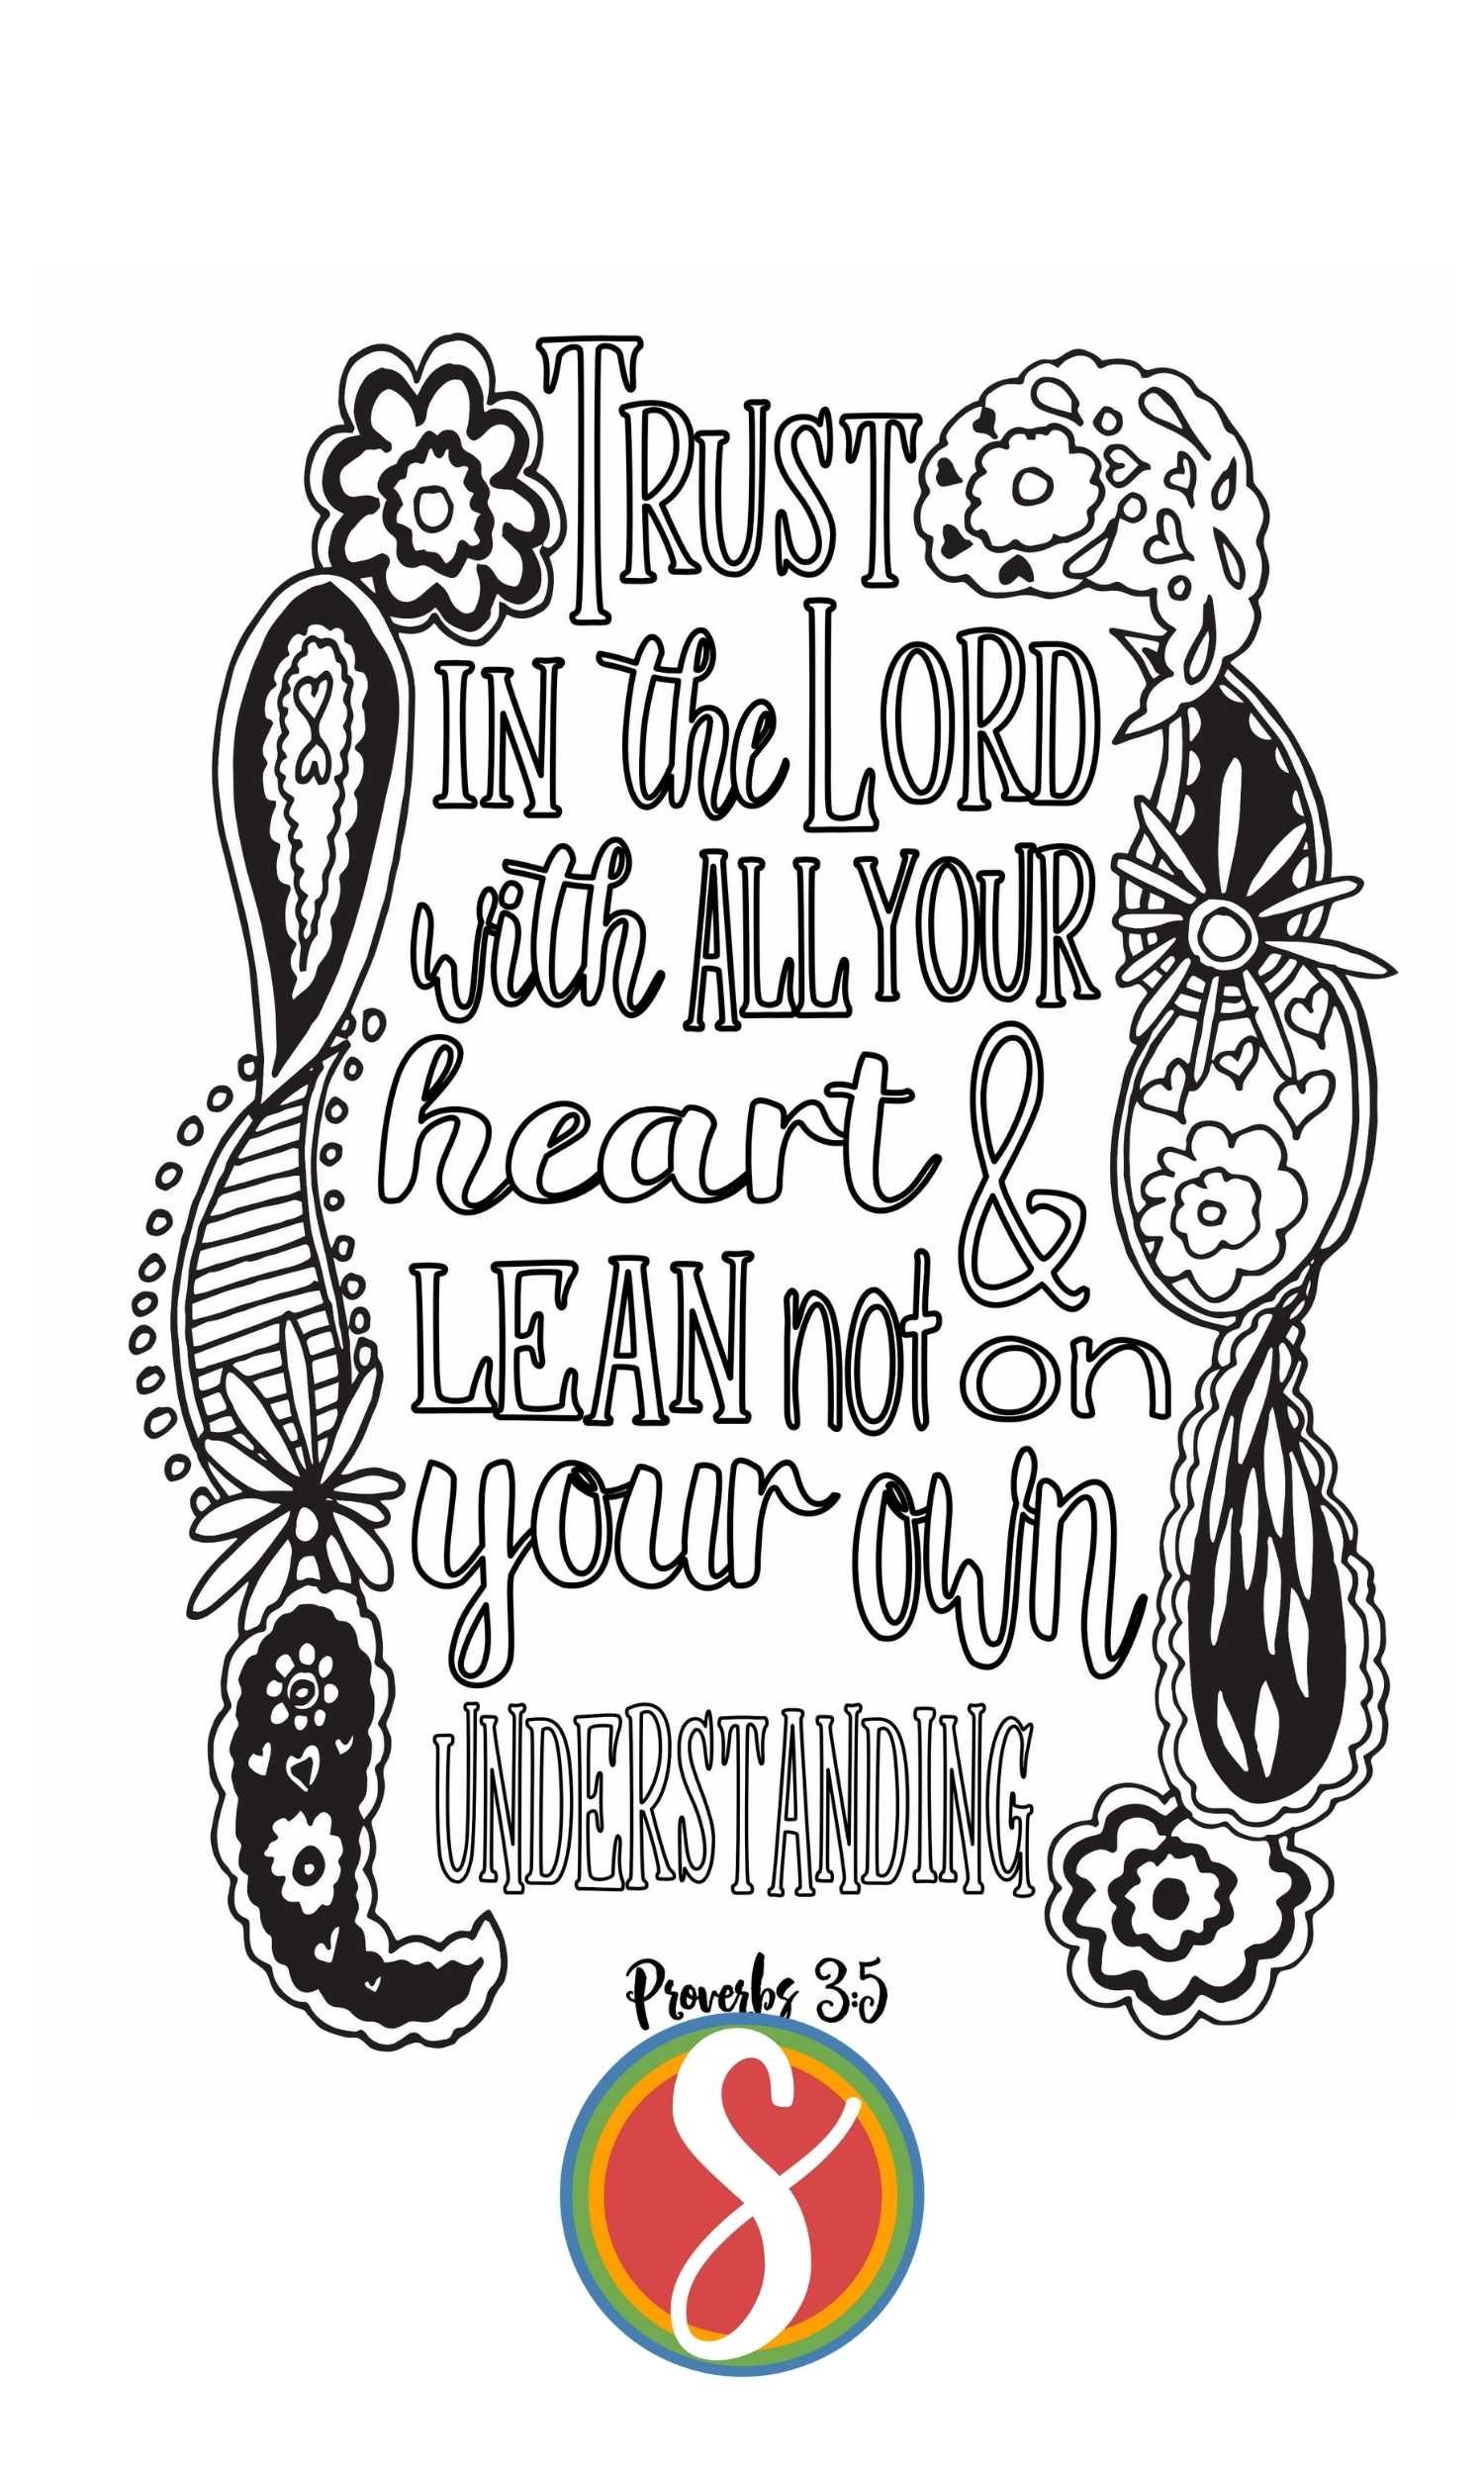 TRUST
IN the LORD
with ALL YOUR
heart &
LEAN not on
your own
UNDERSTANDING
Proverbs 3:5
S